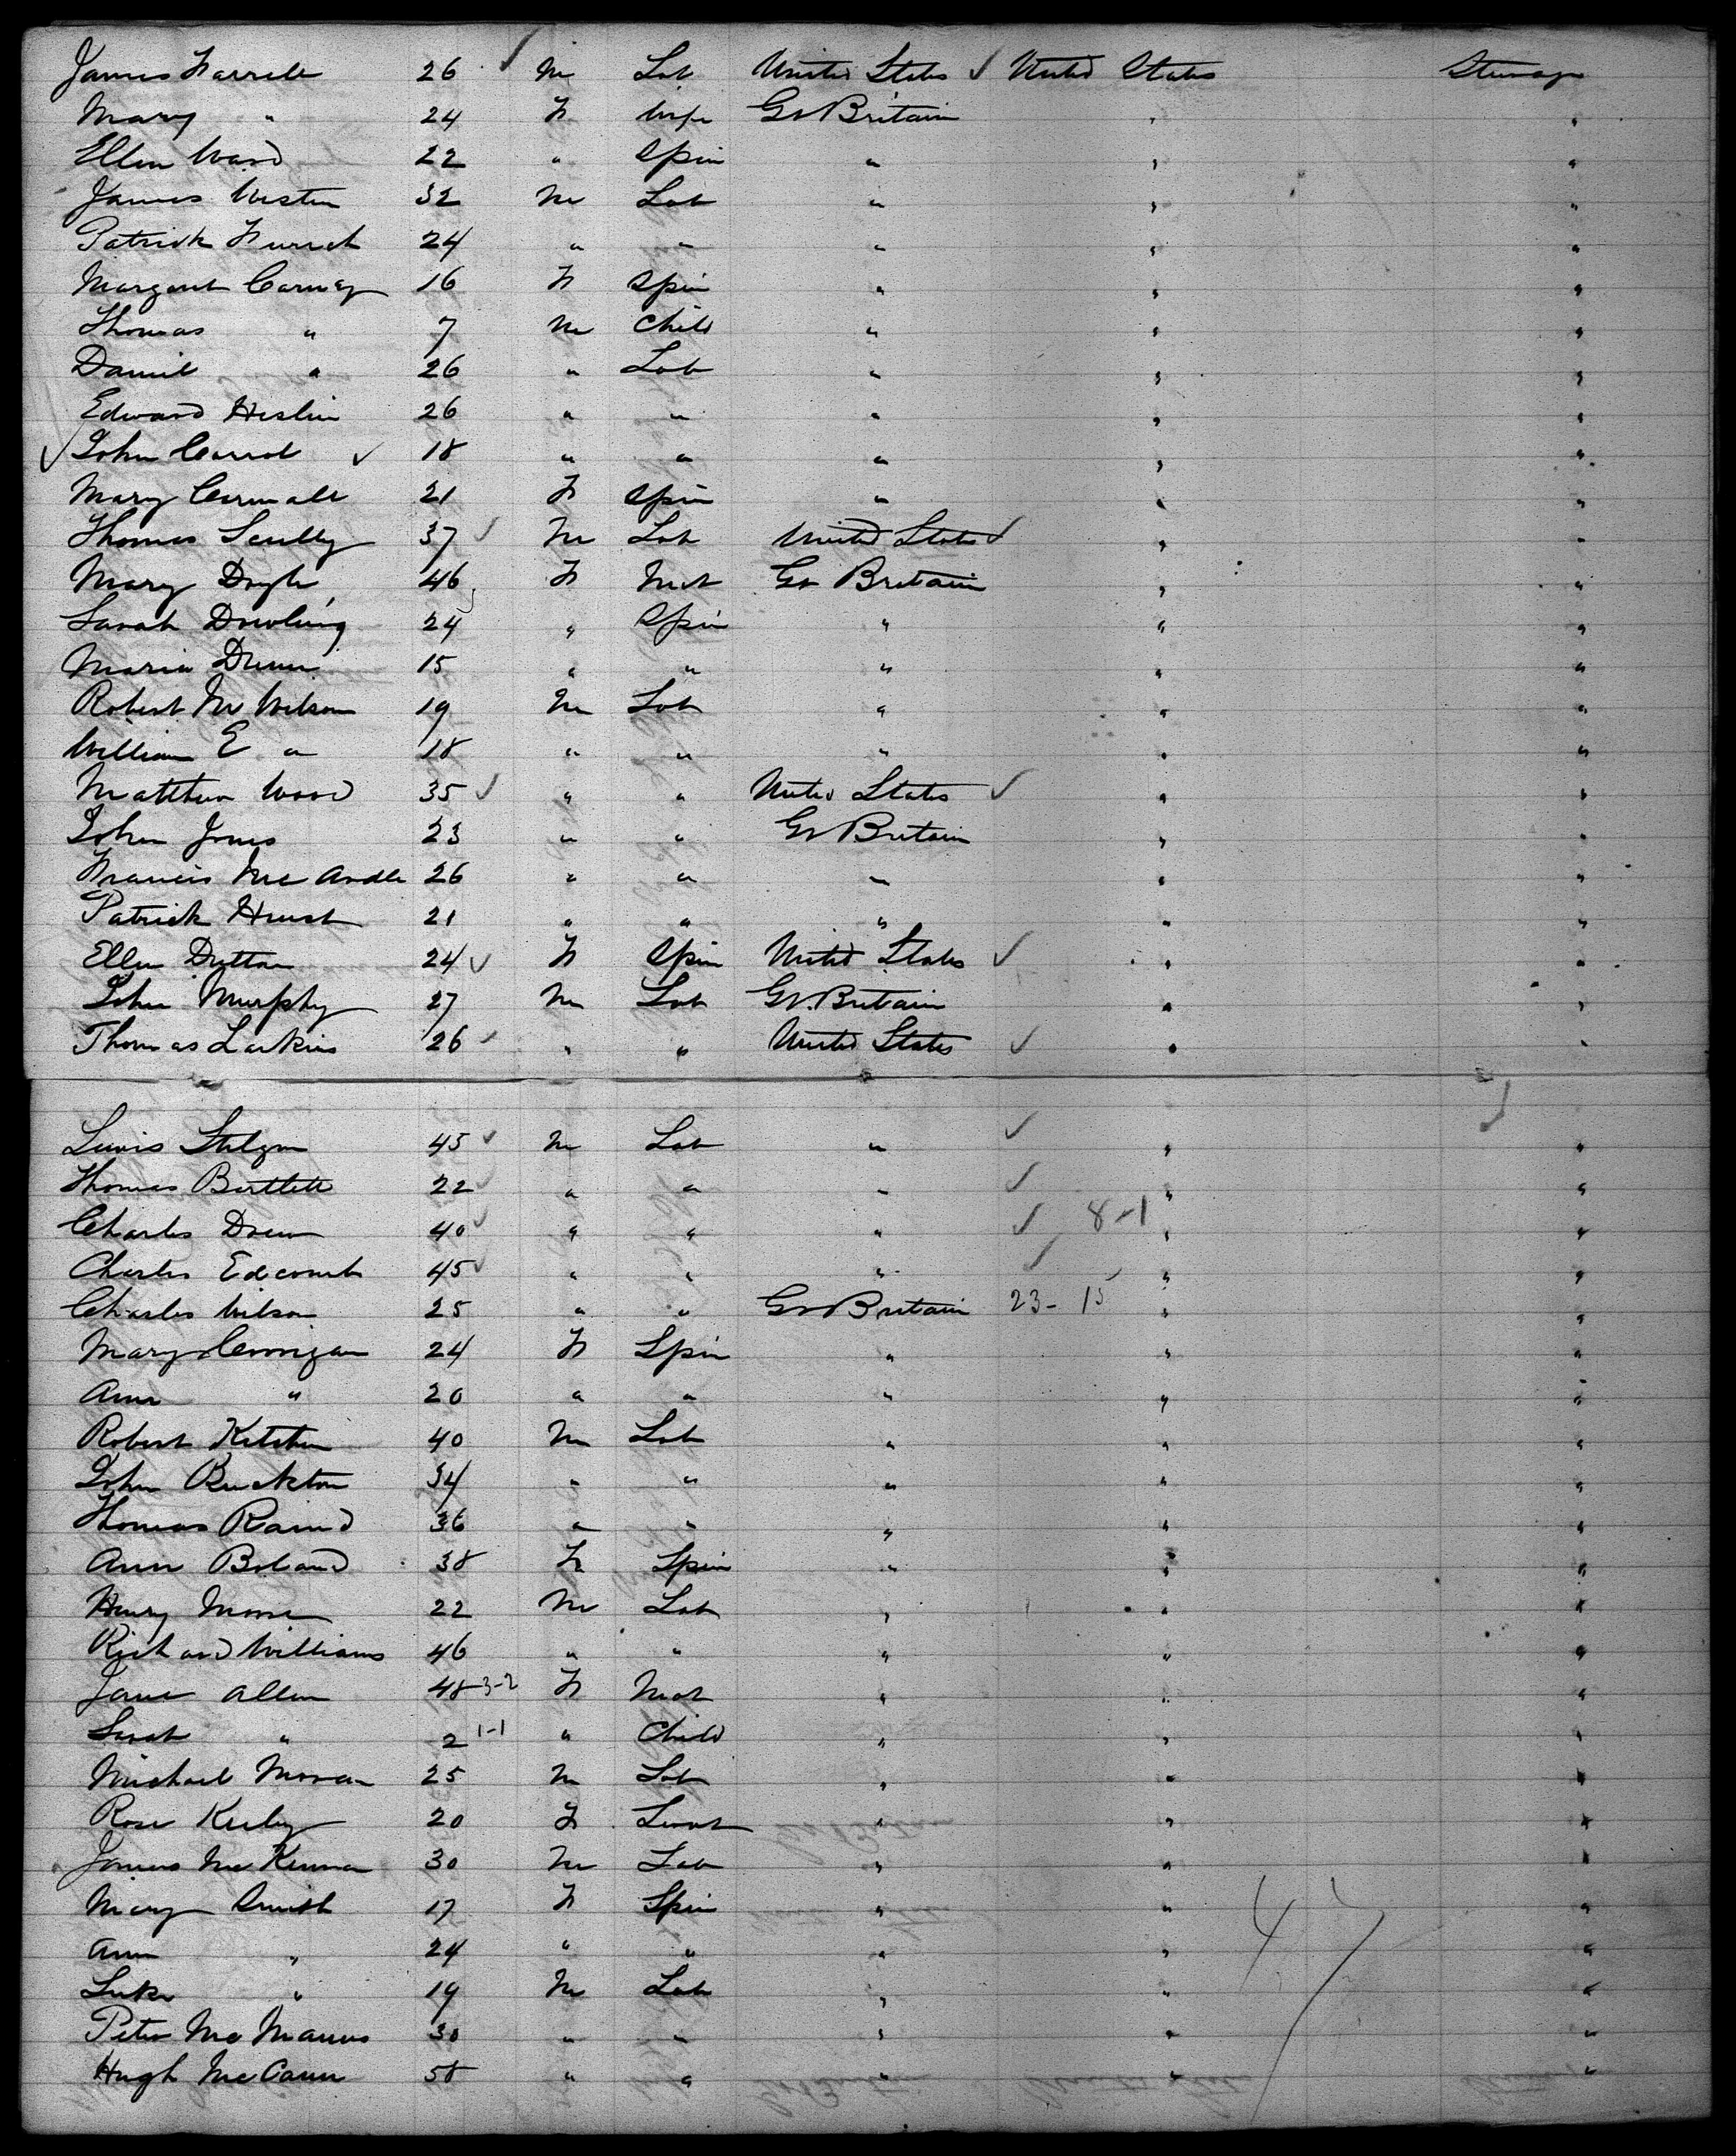 James Farrell 26 ✓ M Lab United States ✓ United States Steerage
Mary " 24 F Wife Gt Britain " "
Ellen Ward 22 " Spin " " "
James Weston 32 M Lab " " "
Patrick 24 " " " " "
Margaret Carney 16 F Spin " " "
Thomas " 7 M Child " " "
Daniel " 26 " Lab " " "
Edward Heslin 26 " " " " "
✓ John Carrol ✓ 18 " " " " "
Mary 21 F Spin " " "
Thomas Scully 37 ✓ M Lab United States ✓ " "
Mary Doyle 46 F Mat Gt Britain " "
Sarah Dowling 24 " Spin " " "
Maria Dunn 15 " " " " "
Robert M Wilson 19 M Lab " " "
William E " 18 " " " " "
Matthew Wood 35 ✓ " " United States ✓ " "
John Jones 23 " " Gt Britain " "
Francis Mc Ardle 26 " " " " "
Patrick Hurst 21 " " " " "
Ellen Dutton 24 ✓ F Spin United States ✓ " "
John Murphy 27 M Lab Gt Britain " "
Thomas Larkins 26 ✓ " " United States ✓ " "
Lewis 45 ✓ M Lab " ✓ " "
Thomas Bartlett 22 ✓ " " " ✓ " "
Charles Drew 40 ✓ " " " ✓ 8-1 " "
Charles Edcomb 45 ✓ " " " ✓ " "
Charles Wilson 25 " " Gt Britain 23-15 " "
Mary Corrigan 24 F Spin " " "
Ann " 20 " " " " "
Robert Kitchin 40 M Lab " " "
John Ruckton 34 " " " " "
Thomas Raind 36 " " " " "
Ann Boland 38 F Spin " " "
Henry Moore 22 M Lab " " "
Richard Williams 46 " " " " "
Jane Allen 48 3-2 F Mat " " "
Sarah " 2 1-1 " Child " " "
Michael Moran 25 M Lab " " "
Rose Kerley 20 F Servt " " "
James Mc Kenna 30 M Lab " " "
Mary Smith 17 F Spin " " "
Ann " 24 " " " " "
Luke " 19 M Lab " " "
Peter Mc Manus 30 " " " " "
Hugh Mc Cann 58 " " " " "
47